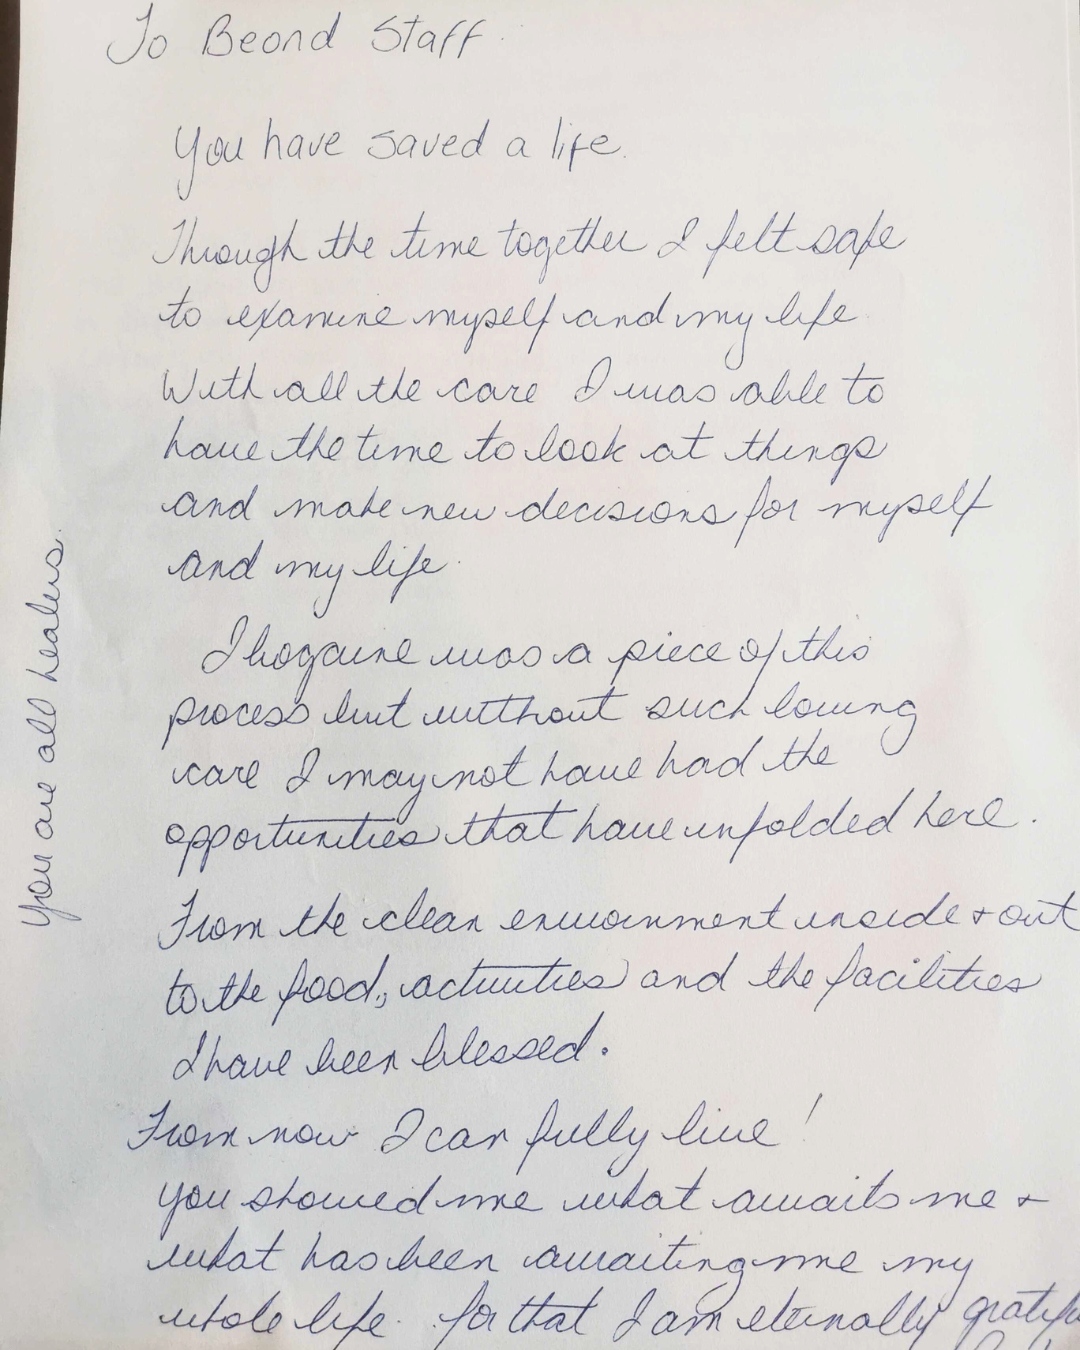 To Beond Staff
You have saved a life.
Through the time together I felt safe
to examine myself and my life
With all the care I was able to
have the time to look at things
and make new decisions for myself
and my life.
Ibogaine was a piece of this
process but without such loving
care I may not have had the
opportunities that have unfolded here.
From the clean enviornment inside + out
to the food, activities and the facilities
I have been blessed.
From now I can fully live!
You showed me what awaits me +
what has been awaiting me my
whole life. for that I am eternally gratefu
You are all healers.